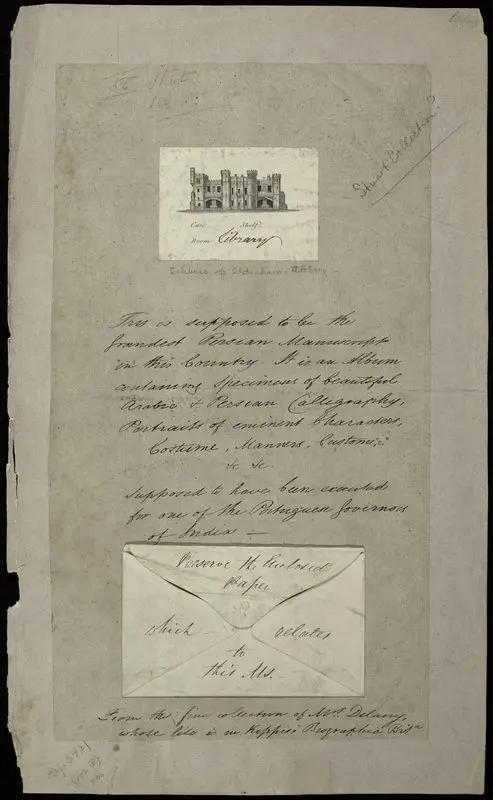 Stuart Collection?
Case Shelf
Room Library
Exlibris of Aldenham Abbey
This is supposed to be the
grandest Persian Manuscript
in this Country. It is an Album
containing Specimens of beautiful
Arabic & Persian Calligraphy,
Portraits of eminent Characters,
Costume, Manners, Customs,
&c &c.
supposed to have been executed
for one of the Portuguese Governors
of India —
Preserve the Enclosed
Paper
which relates
to
this Ms.
From the fine collection of Mrs. Delany,
whose life is in Kippis's Biographia Brita